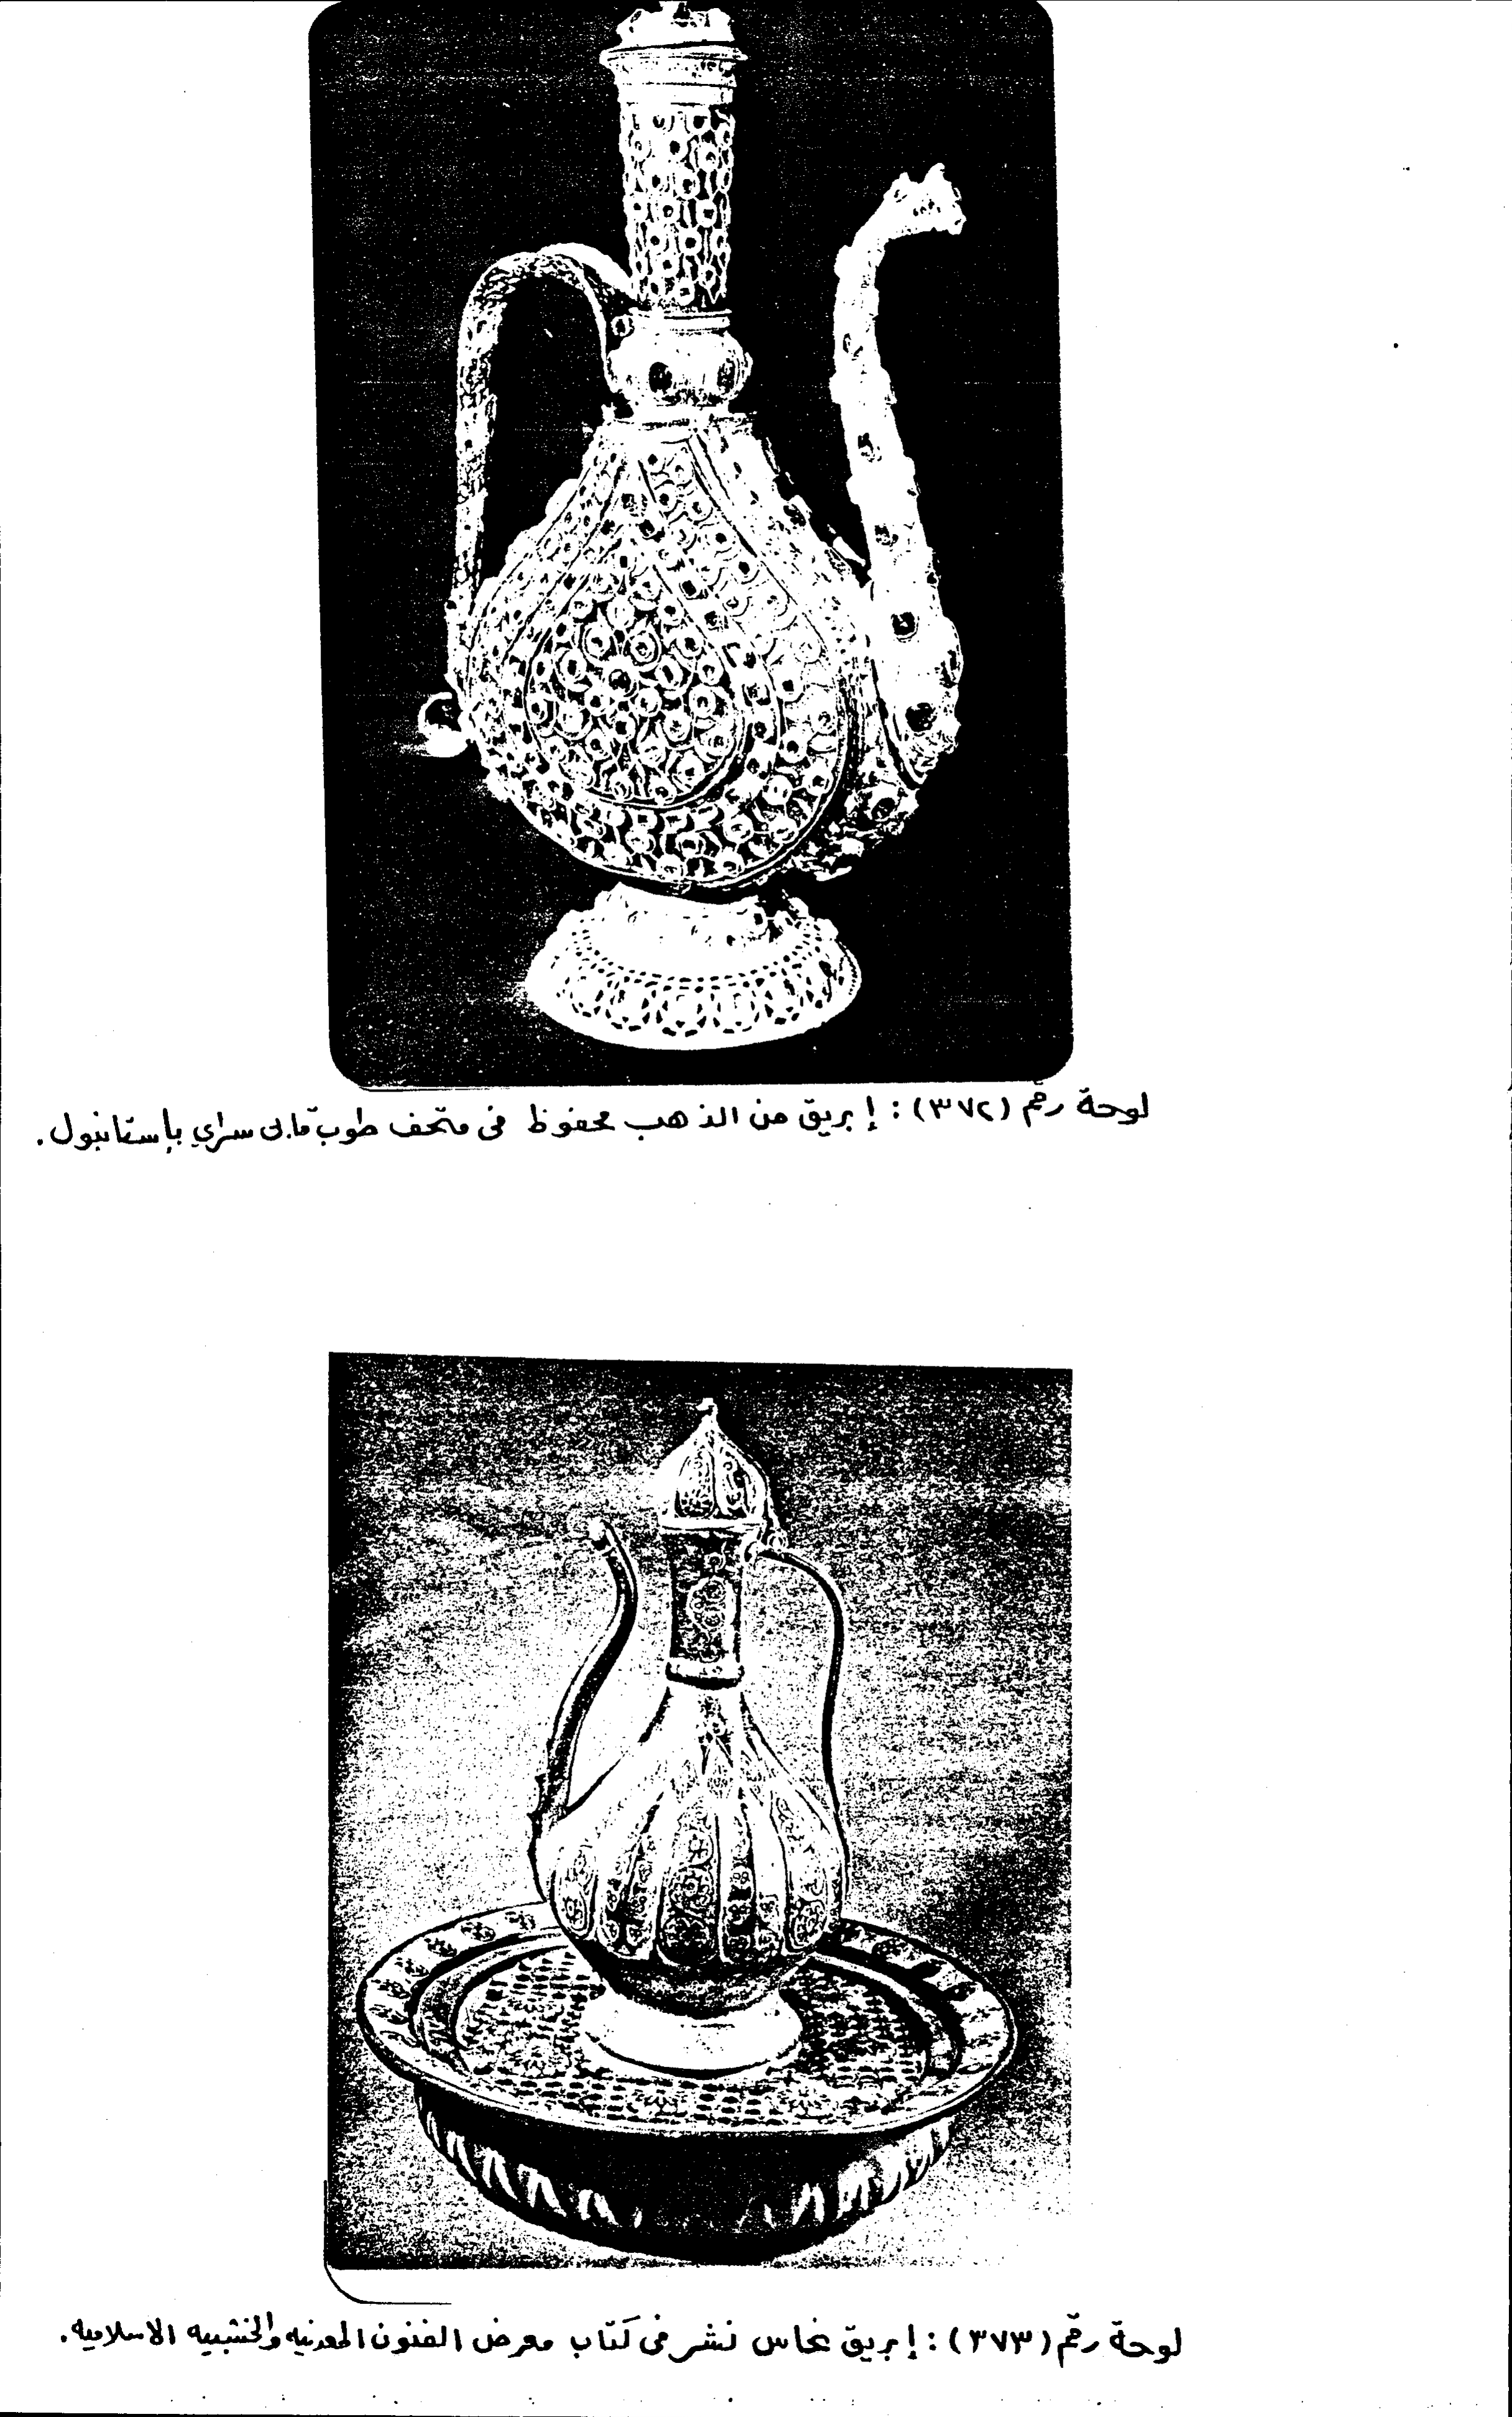 لوحة رقم (٣٧٢) : إبريق من الذهب محفوظ فى متحف طوب قابى سراي بإستانبول .
لوحة رقم (٣٧٣) : إبريق نحاس نشر فى كتاب معرض الفنون المعدنيه والخشبيه الاسلاميه .